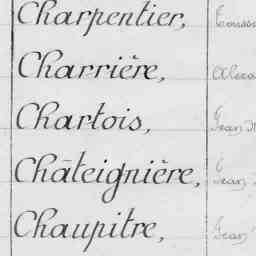 Charpentier,
Charrière,
Chartois, Jean
Châteignière,
Chaupitre, Jean